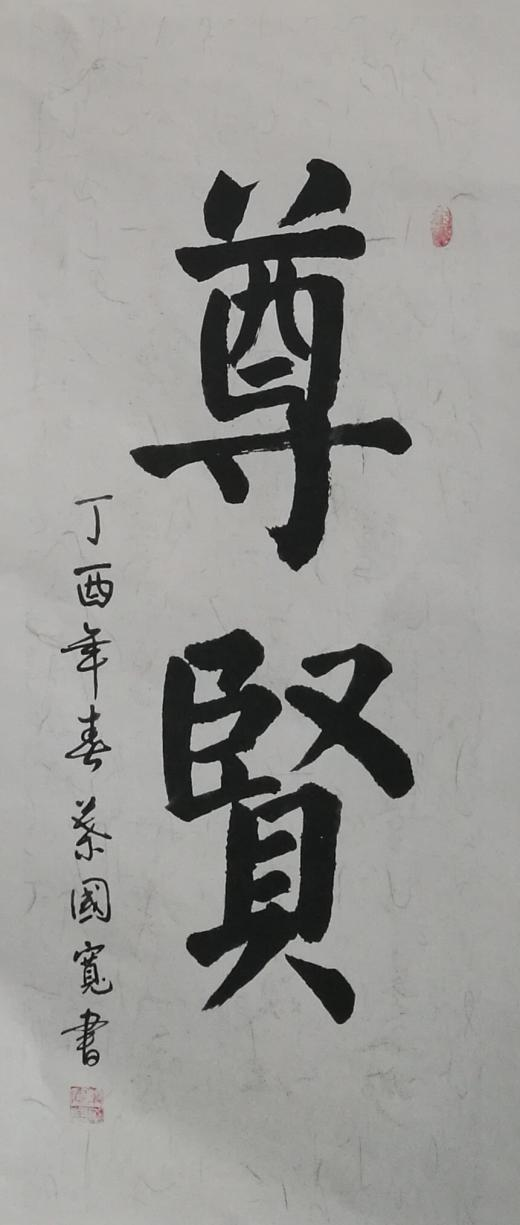 尊賢
丁酉年春蔡國寬書